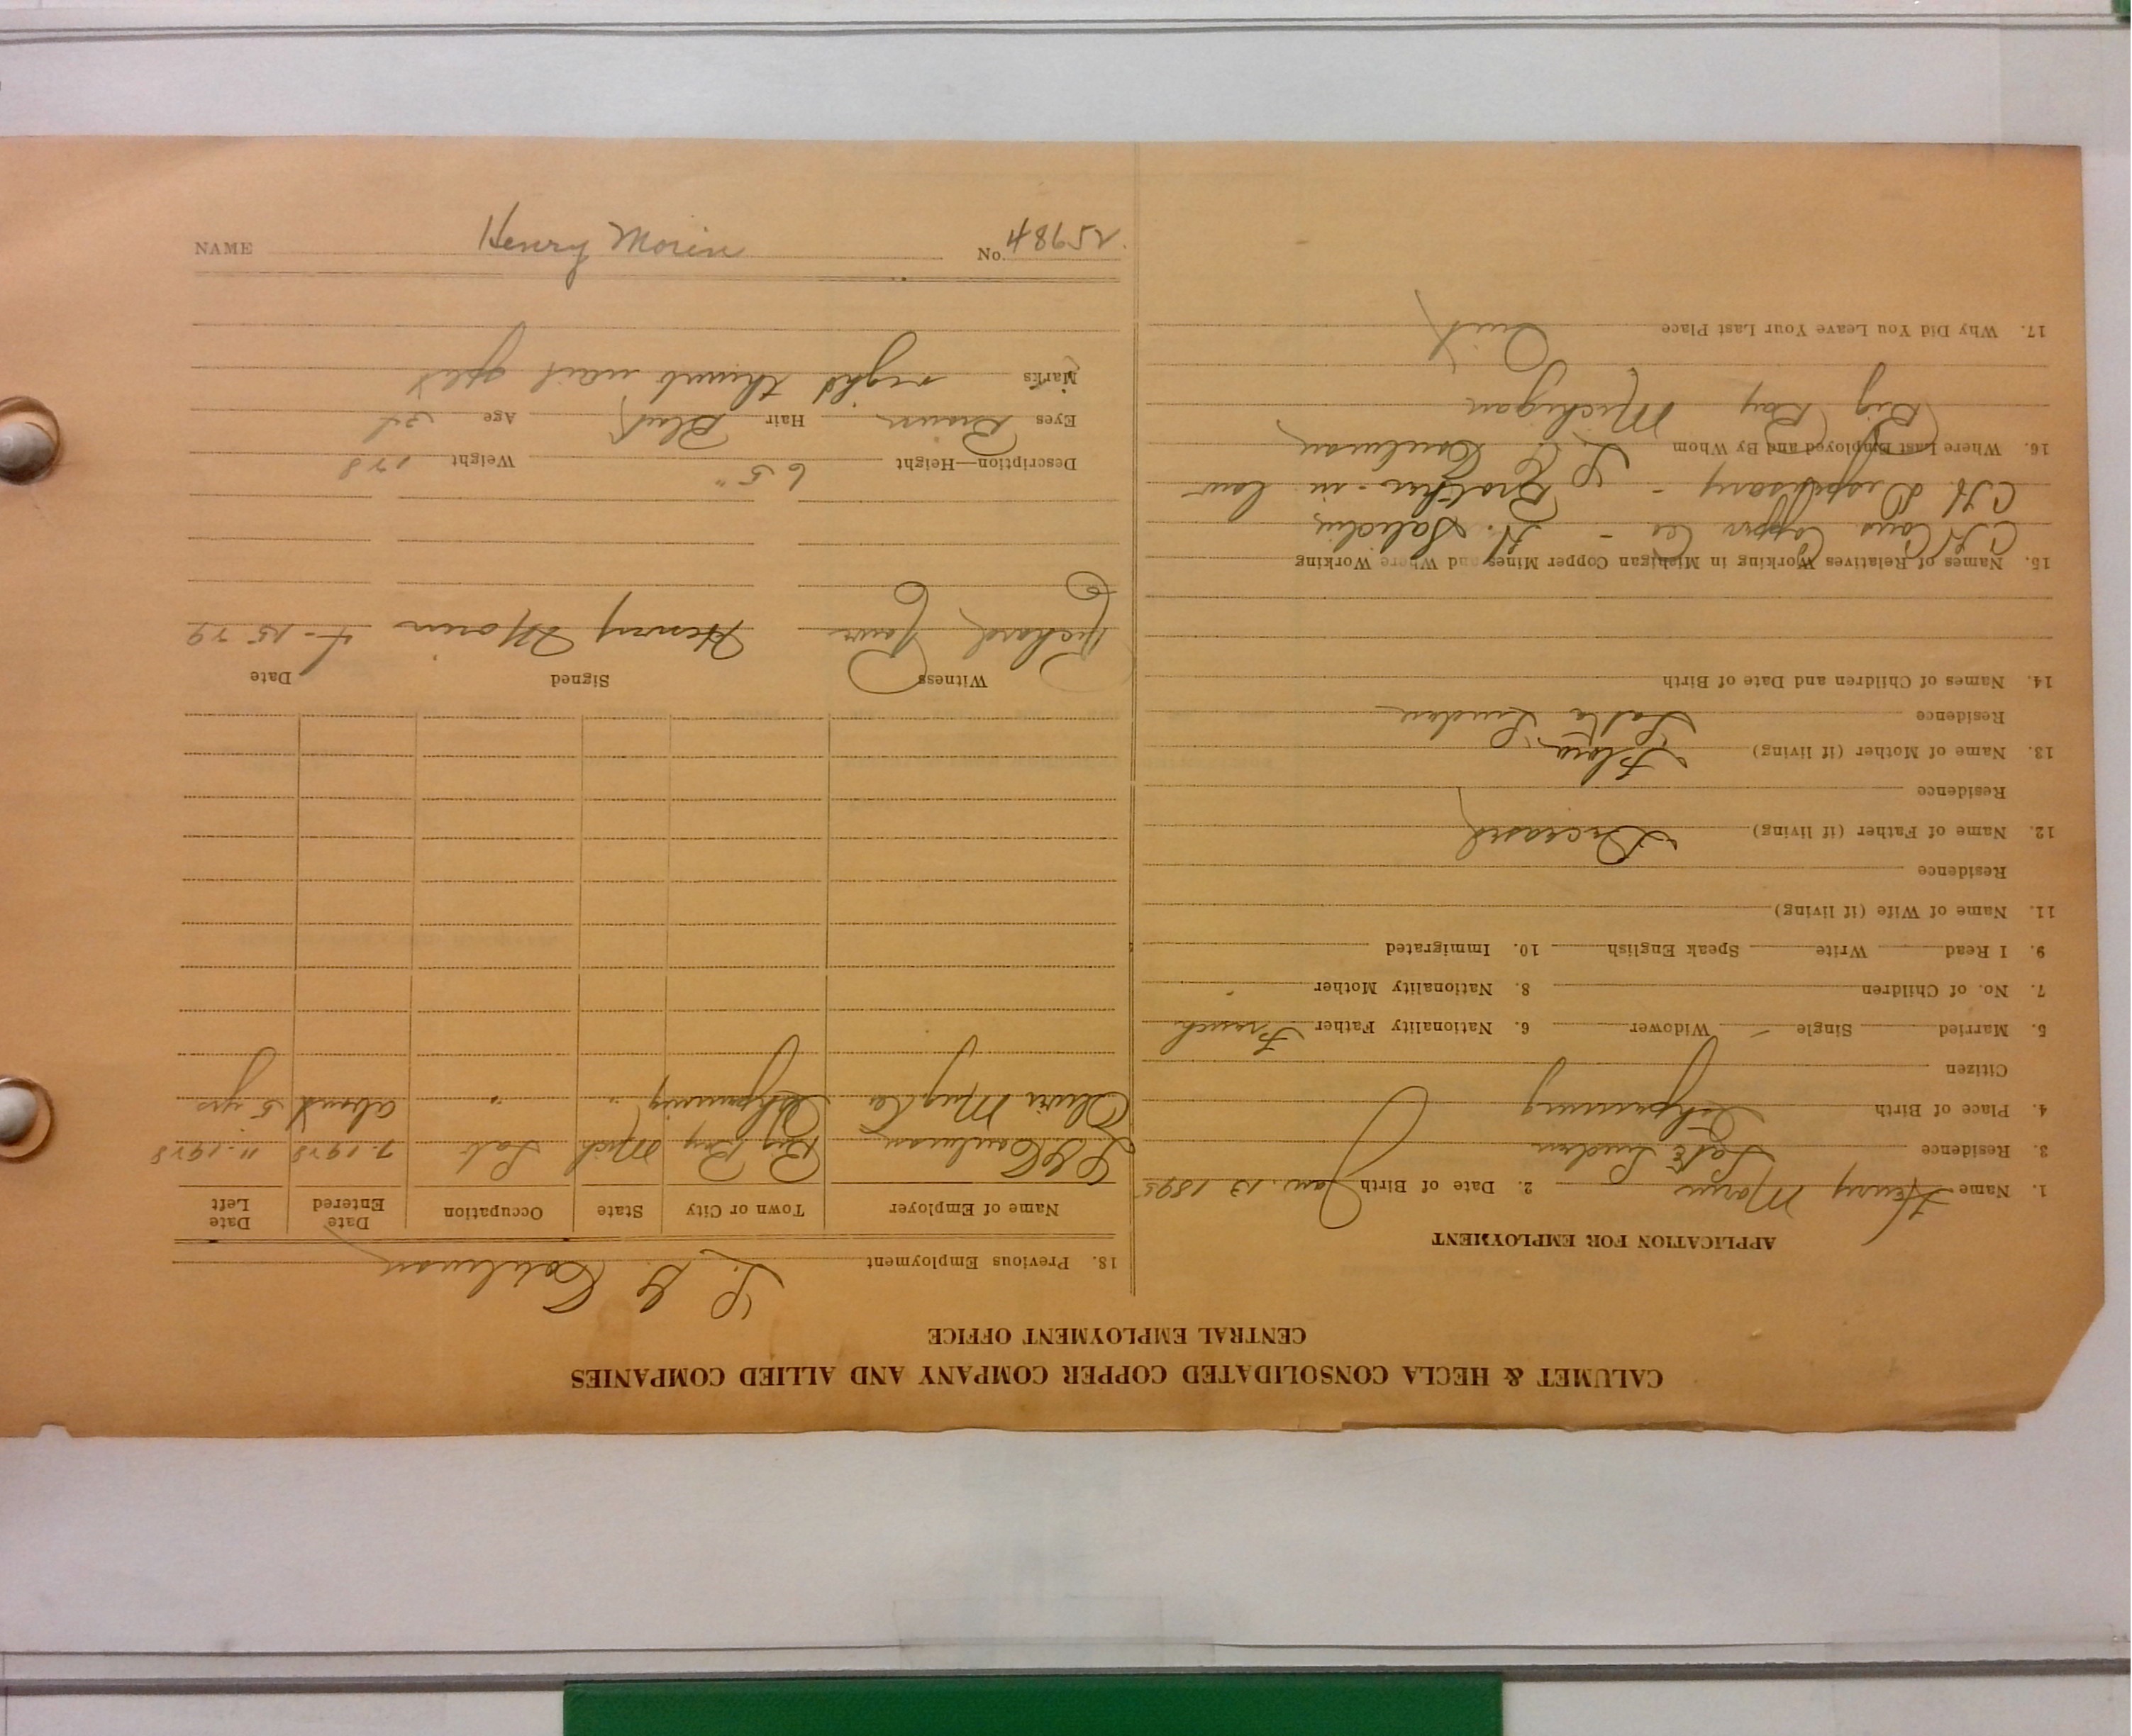 CALUMET & HECLA CONSOLIDATED COPPER COMPANY AND ALLIED COMPANIES
CENTRAL EMPLOYMENT OFFICE
APPLICATION FOR EMPLOYMENT
1. Name Henry Morin 2. Date of Birth Jan. 13 1895
3. Residence Lake Linden
4. Place of Birth Ishpeming
Citizen
5. Married Single Widower 6. Nationality Father French
7. No. of Children 8. Nationality Mother
9. I Read Write Speak English 10. Immigrated
11. Name of Wife (if living)
Residence
12. Name of Father (if living) Deceased
Residence
13. Name of Mother (if living) Flora
Residence Lake Linden
14. Names of Children and Date of Birth
15. Names of Relatives Working in Michigan Copper Mines and Where Working
C.H Cons Copper Co -
C.H Dispensary - Brother-in law
16. Where Last Employed and By Whom
Big Bay Michigan
17. Why Did You Leave Your Last Place Quit
18. Previous Employment
Name of Employer Town or City State Occupation Date Entered Date Left
Big Bay Mich Lab 7-1928 11-1928
Ishpeming " " about 5 yrs
Witness Signed Date
Richard Henry Morin 4-15 29
Description—Height 65" Weight 178
Eyes Brown Hair Black Age 34
Marks right thumb nail split
NAME Henry Morin No. 48652